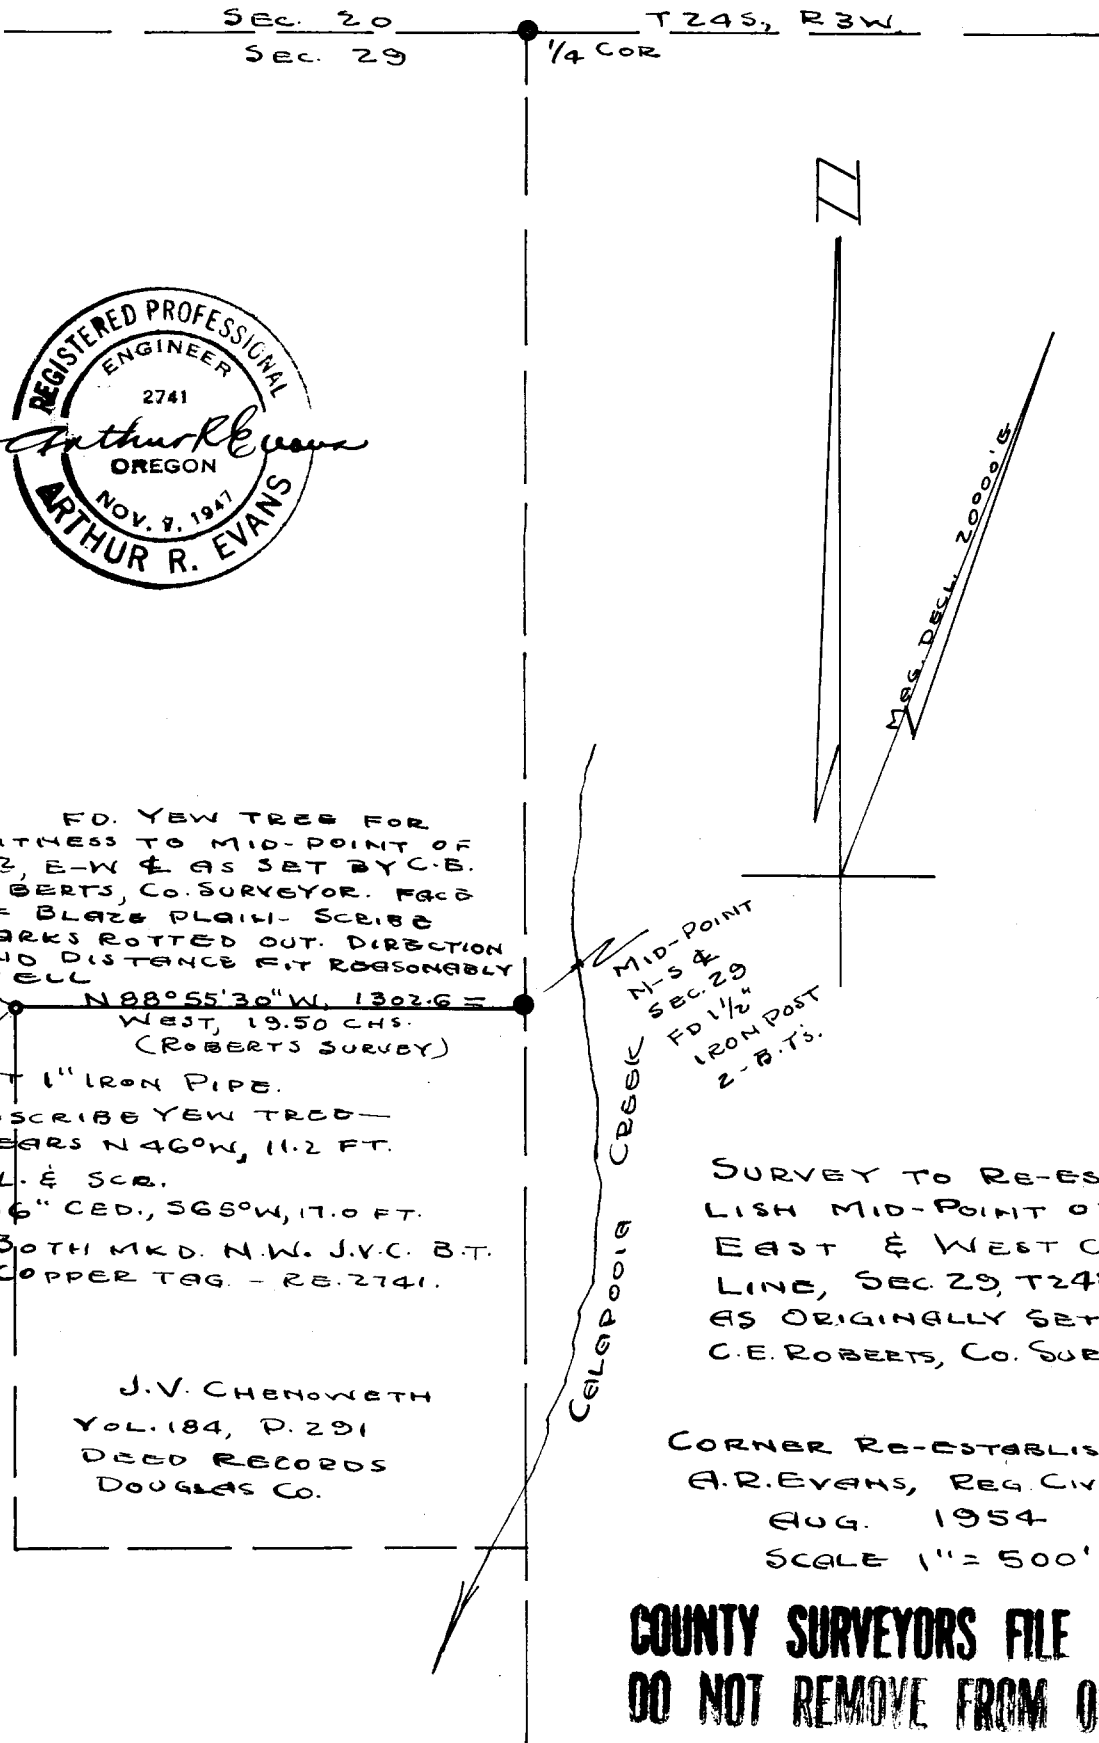 SEC. 20
T24S, R3W.
SEC. 29
1/4 COR
REGISTERED PROFESSIONAL
ENGINEER
2741
Arthur R Evans
OREGON
NOV. 7, 1947
ARTHUR R. EVANS
MAG. DECL. 20°00'E
FD. YEW TREE FOR
ITNESS TO MID-POINT OF
2, E-W ℄ AS SET BY C.E.
BERTS, CO. SURVEYOR. FACE
F BLAZE PLAIN- SCRIBE
ARKS ROTTED OUT. DIRECTION
ND DISTANCE FIT REASONABLY
ELL
N 88°55'30"W, 1302.6 =
WEST, 19.50 CHS.
(ROBERTS SURVEY)
T 1" IRON PIPE.
SCRIBE YEW TREE—
EARS N46°W, 11.2 FT.
L. & SCR.
6" CED., S65°W, 17.0 FT.
BOTH MKD. N.W. J.V.C. B.T.
COPPER TAG. - RE. 2741.
MID-POINT
N-S ℄
SEC. 29
FD 1 1/2"
IRON POST
2-B.T'S.
CALAPOOIA CREEK
J.V. CHENOWETH
VOL. 184, P. 291
DEED RECORDS
DOUGLAS CO.
SURVEY TO RE-ES
LISH MID-POINT O
EAST & WEST C
LINE, SEC. 29, T24
AS ORIGINALLY SET
C.E. ROBERTS, CO. SUR
CORNER RE-ESTABLIS
A.R. EVANS, REG. CIV
AUG. 1954
SCALE 1" = 500'
COUNTY SURVEYORS FILE
DO NOT REMOVE FROM O